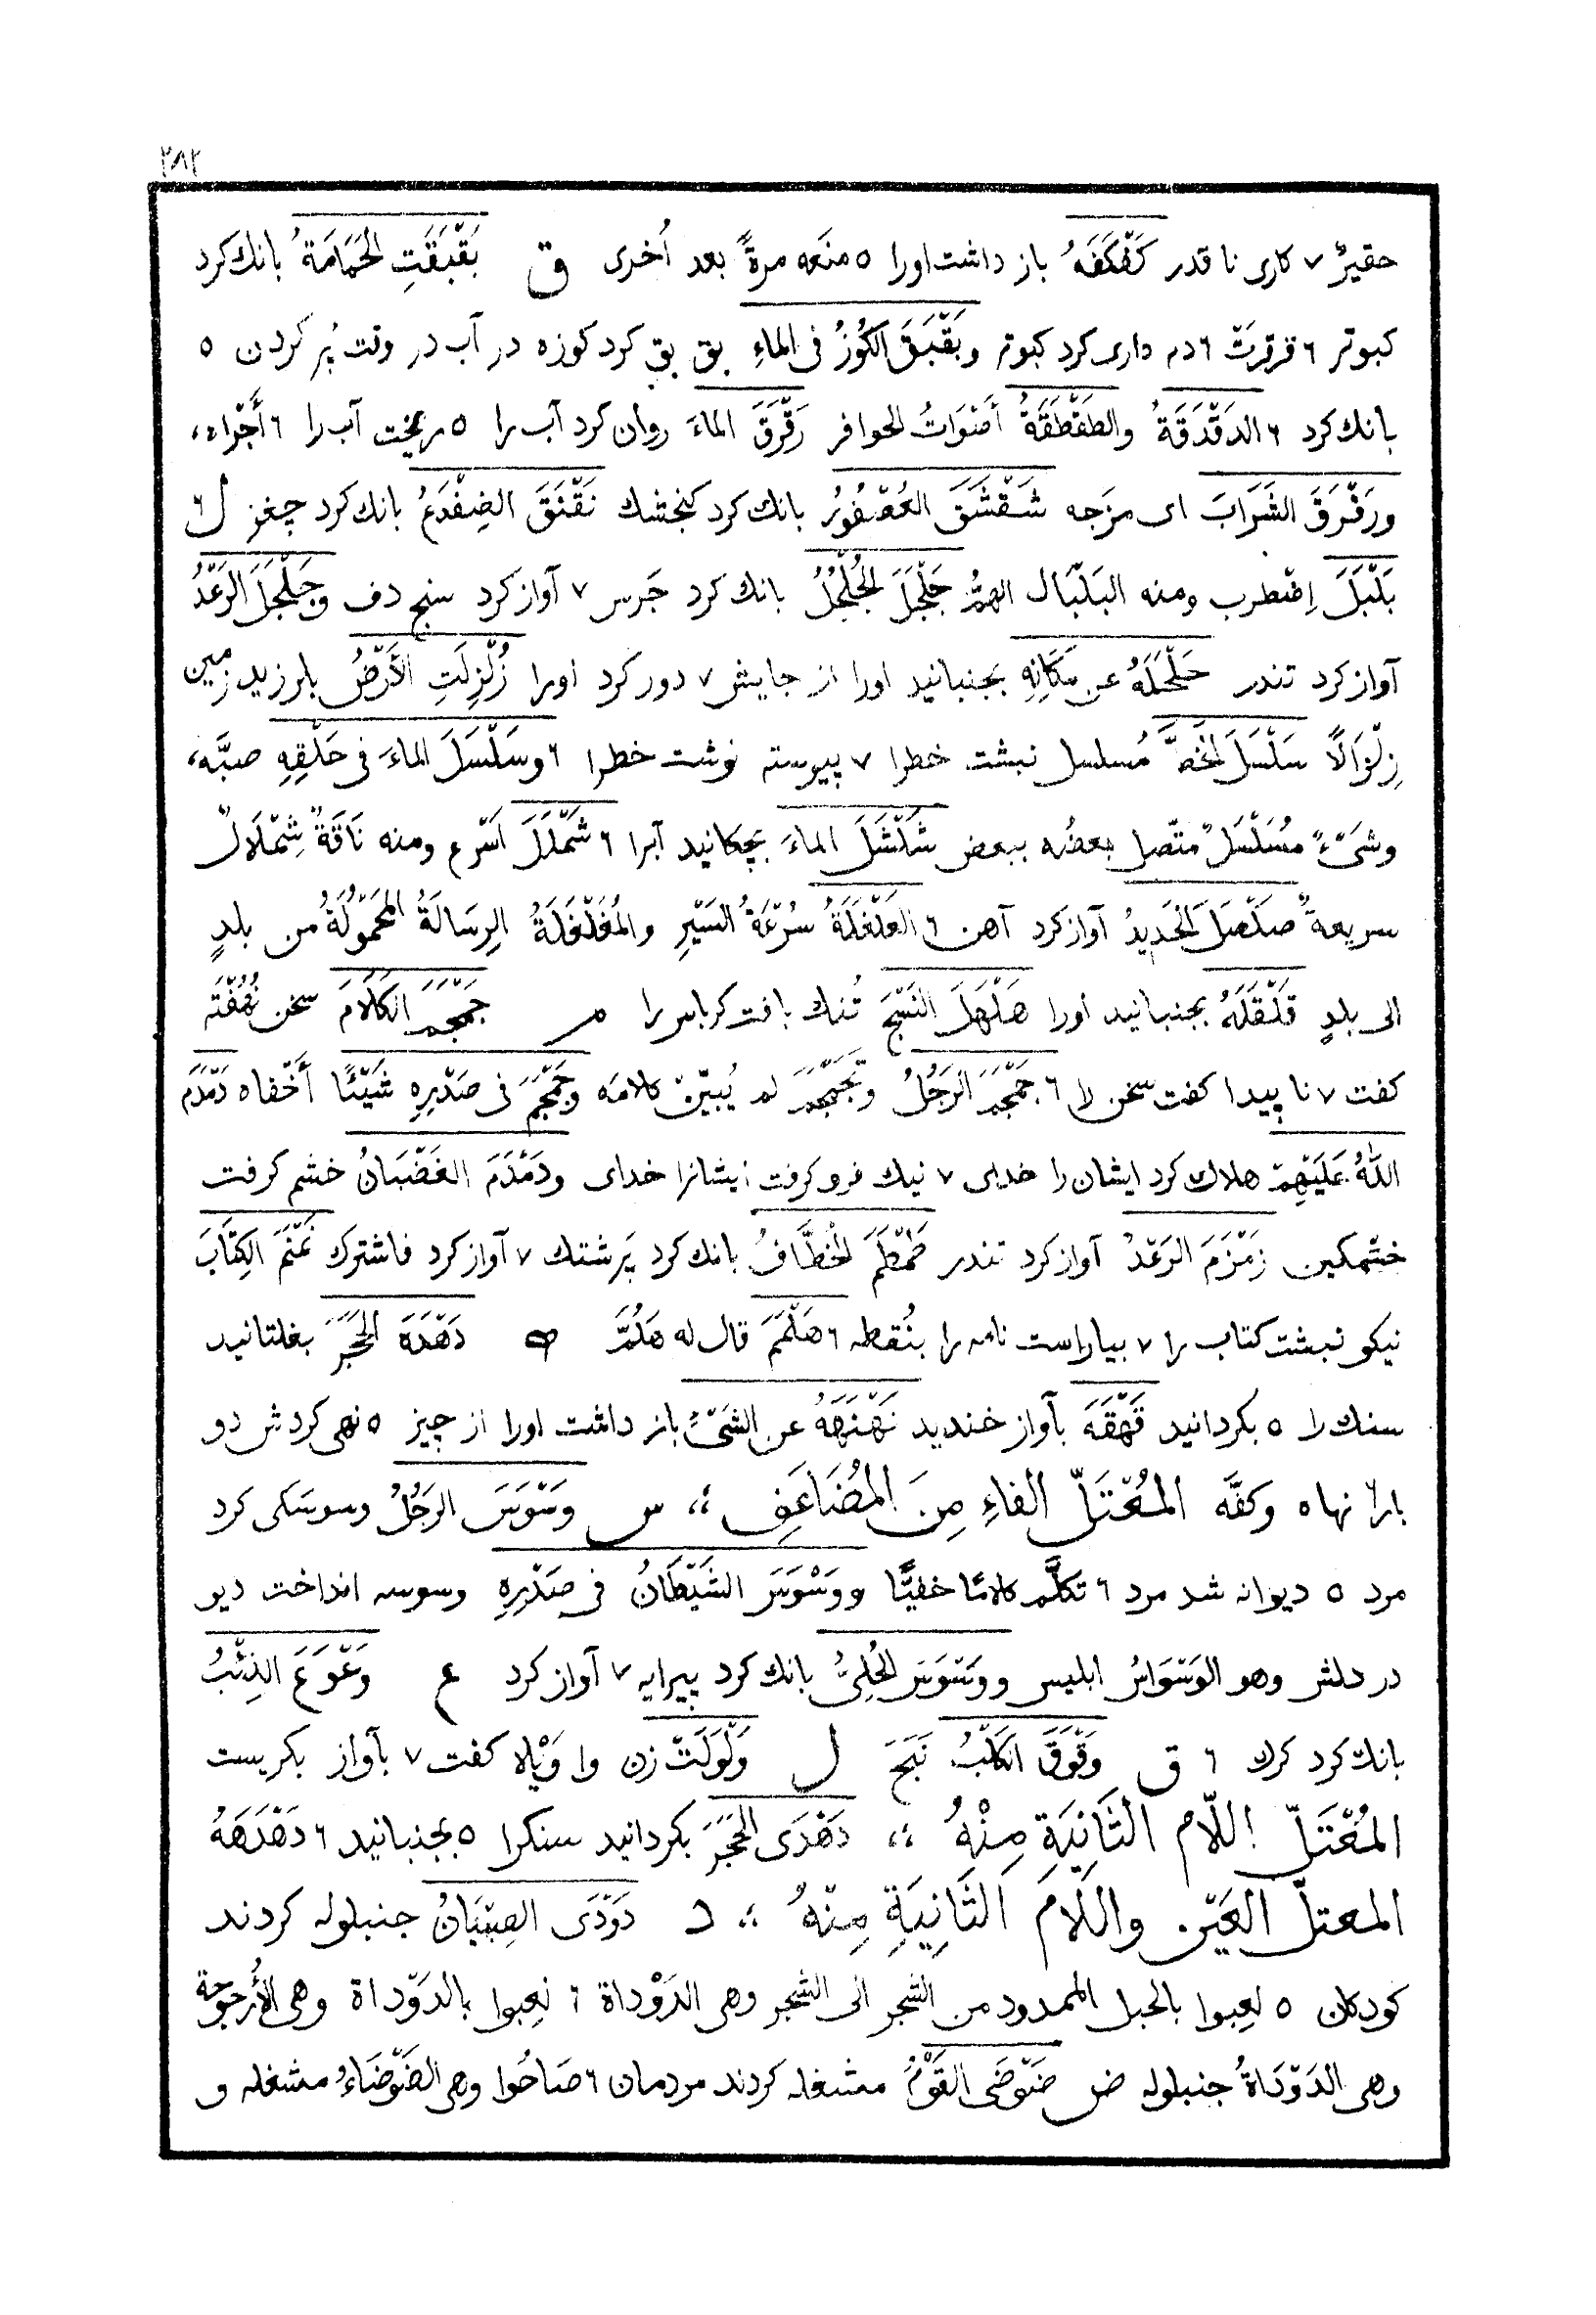 ٢٨٢
حقيرٌ ٧ كارى نا قدر كَفْكَفَهُ باز داشت اورا ٥ منَعه مرةً بعد اُخرى ق بَقْبَقَتِ الحَمَامَةُ بانك كرد
كبوتر ٦ قرقرتْ ٦ دم دارى كرد كبوتر وبَقْبَقَ الكُوزُ فى الماءِ بق بق كرد كوزه در آب در وقت پُر كردن ٥
بانك كرد ٦ الدَقْدَقَةُ والطَقْطَقَةُ أصْوَاتُ الحوافر رَقْرَقَ الماءَ روان كرد آب را ٥ ريخت آب را ٦ أجْراه،
ورَقْرَقَ الشَرَابَ اى مزَجه شَقْشَقَ العُصْفُورُ بانك كرد كنجشك نَقْنَقَ الضِفْدَعُ بانك كرد چغز ل ٦
بَلْبَلَ اِضْطرب ومنه البَلْبَال الهمُّ جَلْجَلَ الجُلْجُلُ بانك كرد جَرس ٧ آواز كرد سنج دف وجَلْجَلَ الرَعْدُ
آواز كرد تندر حَلْحَلَهُ عن مَكَانِهِ بجنبانيد اورا از جايش ٧ دور كرد اورا زُلْزِلَتِ الأَرْضُ بلرزيد زمين
زِلْزَالًا سَلْسَلَ الخَطَّ مُسلسل نبشت خطرا ٧ پيوسته نوشت خطرا ٦ وسَلْسَلَ الماءَ فى حَلْقِهِ صبَّه،
وشَىْءٌ مُسَلْسَلٌ متّصل بعضُه ببعض شَلْشَلَ الماءَ بچكانيد آبرا ٦ شَمْلَلَ اَسْرع ومنه نَاقَةٌ شِمْلَالٌ
سريعةٌ صَلْصَلَ الحَدِيدُ آواز كرد آهن ٦ الغَلْغَلَةُ سُرْعَةُ السَيْرِ والمُغَلْغَلَةُ الرِسَالَةُ المَحْمُولَةُ من بلدٍ
الى بلدٍ قَلْقَلَهُ بجنبانيد اورا هَلْهَلَ النَسْجَ تُنك بافت كرباس را م جَمْجَمَ الكَلَامَ سخن نُهُفْتَه
كفت ٧ نا پيدا كفت سخن را ٦ جَمْجَمَ الرَجُلُ وتَجَمْجَمَ لم يُبيّن كلامَه وجَمْجَمَ فى صَدْرِهِ شَيْئًا أَخْفاه دَمْدَمَ
اللهُ عَلَيْهِمْ هلاك كرد ايشان را خداى ٧ نيك فرو كرفت ايشانرا خداى ودَمْدَمَ الغَضْبَانُ خشم كرفت
خشمكين زَمْزَمَ الرَعْدُ آواز كرد تندر طَمْطَمَ الخُطَّافُ بانك كرد پَرشتك ٧ آواز كرد فاشترك نَمْنَمَ الكِتَابَ
نيكو نبشت كتاب را ٧ بياراست نامه را بنُقطه ٦ هَلْمَمَ قال له هَلُمَّ ه دَهْدَهَ الحَجَرَ بغلتانيد
سنك را ٥ بكردانيد قَهْقَهَ بآواز خنديد نَهْنَهَهُ عن الشَىْءِ باز داشت اورا از چيز ٥ نهى كردش دو
بار ٦ نهاه وكفَّه المُعْتَلّ الفاءِ مِنَ المُضَاعَفِ ؛؛ س وَسْوَسَ الرَجُلُ وسوسَكى كرد
مرد ٥ ديوانه شد مرد ٦ تكلَّم كلامًا خفيًّا ووَسْوَسَ الشَيْطَانُ فى صَدْرِهِ وسوسه انداخت ديو
در دلش وهو الوَسْوَاسُ ابليس ووَسْوَسَ الحُلِىُّ بانك كرد پيرايه ٧ آواز كرد ع وَعْوَعَ الذِئْبُ
بانك كرد كرك ٦ ق وَقْوَقَ الكَلْبُ نَبَحَ ل وَلْوَلَتْ زن وا وَيْلا كفت ٧ بآواز بكريست
المُعْتَلّ اللّام الثَانِيَةِ مِنْهُ ؛؛ دَهْدَى الحَجَرَ بكردانيد سنكرا ٥ بجنبانيد ٦ دَهْدَهَهُ
المعتلّ العَيْن واللَامِ الثَانِيَةِ مِنْهُ ؛؛ د دَوْدَى الصِبْيَانُ جنبلوله كردند
كودكان ٥ لعِبوا بالحبل الممدود من الشجر الى الشجر وهى الدَوْداة ٦ لعِبوا بالدَوْداة وهى الأُرجوحة
وهى الدَوْدَاةُ جنبلوله ض ضَوْضَى القَوْمُ مشغله كردند مردمان ٦ صَاحُوا وهى الضَوْضَاءُ مشغله و